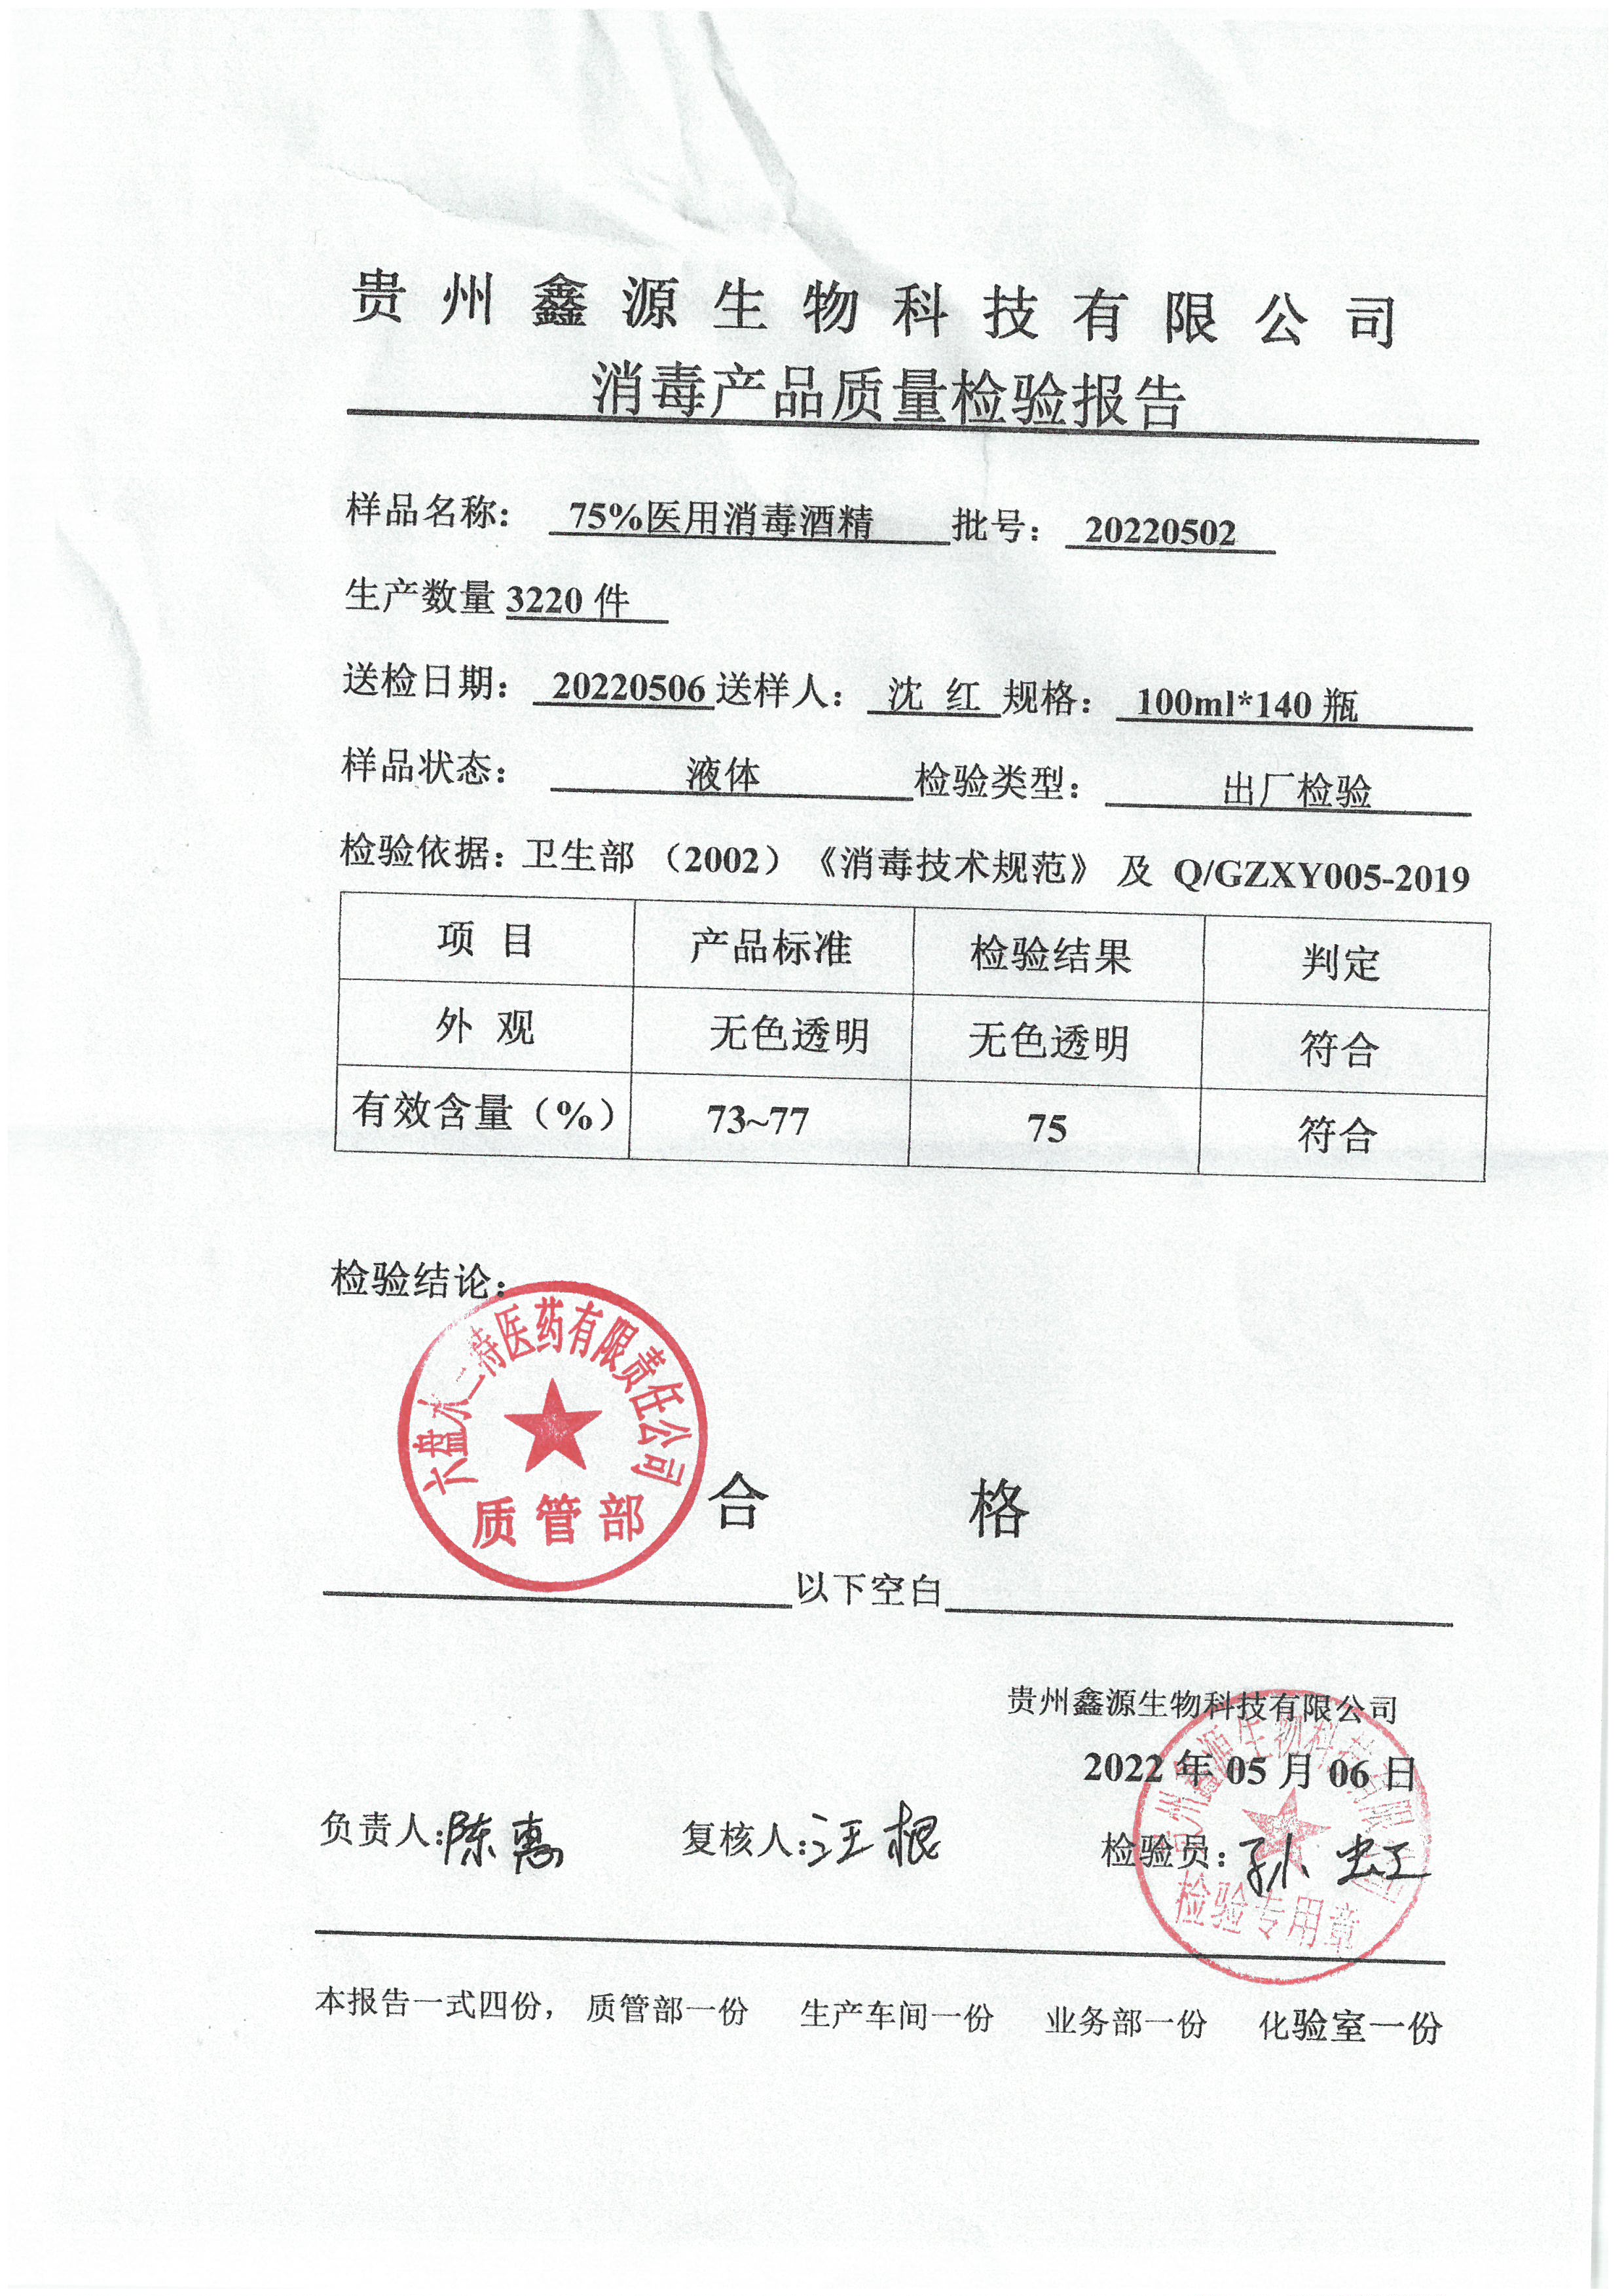 贵州鑫源生物科技有限公司
消毒产品质量检验报告
样品名称： 75%医用消毒酒精 批号： 20220502
生产数量 3220 件
送检日期： 20220506 送样人： 沈 红 规格： 100ml*140 瓶
样品状态： 液体 检验类型： 出厂检验
检验依据：卫生部 （2002）《消毒技术规范》 及 Q/GZXY005-2019
项 目 产品标准 检验结果 判定
外 观 无色透明 无色透明 符合
有效含量（%） 73~77 75 符合
检验结论：
六盘水二特医药有限责任公司
质管部
合 格
以下空白
贵州鑫源生物科技有限公司
2022 年 05 月 06 日
负责人:陈惠 复核人:汪根 检验员:孙虹
贵州鑫源生物科技有限公司
检验专用章
本报告一式四份， 质管部一份 生产车间一份 业务部一份 化验室一份